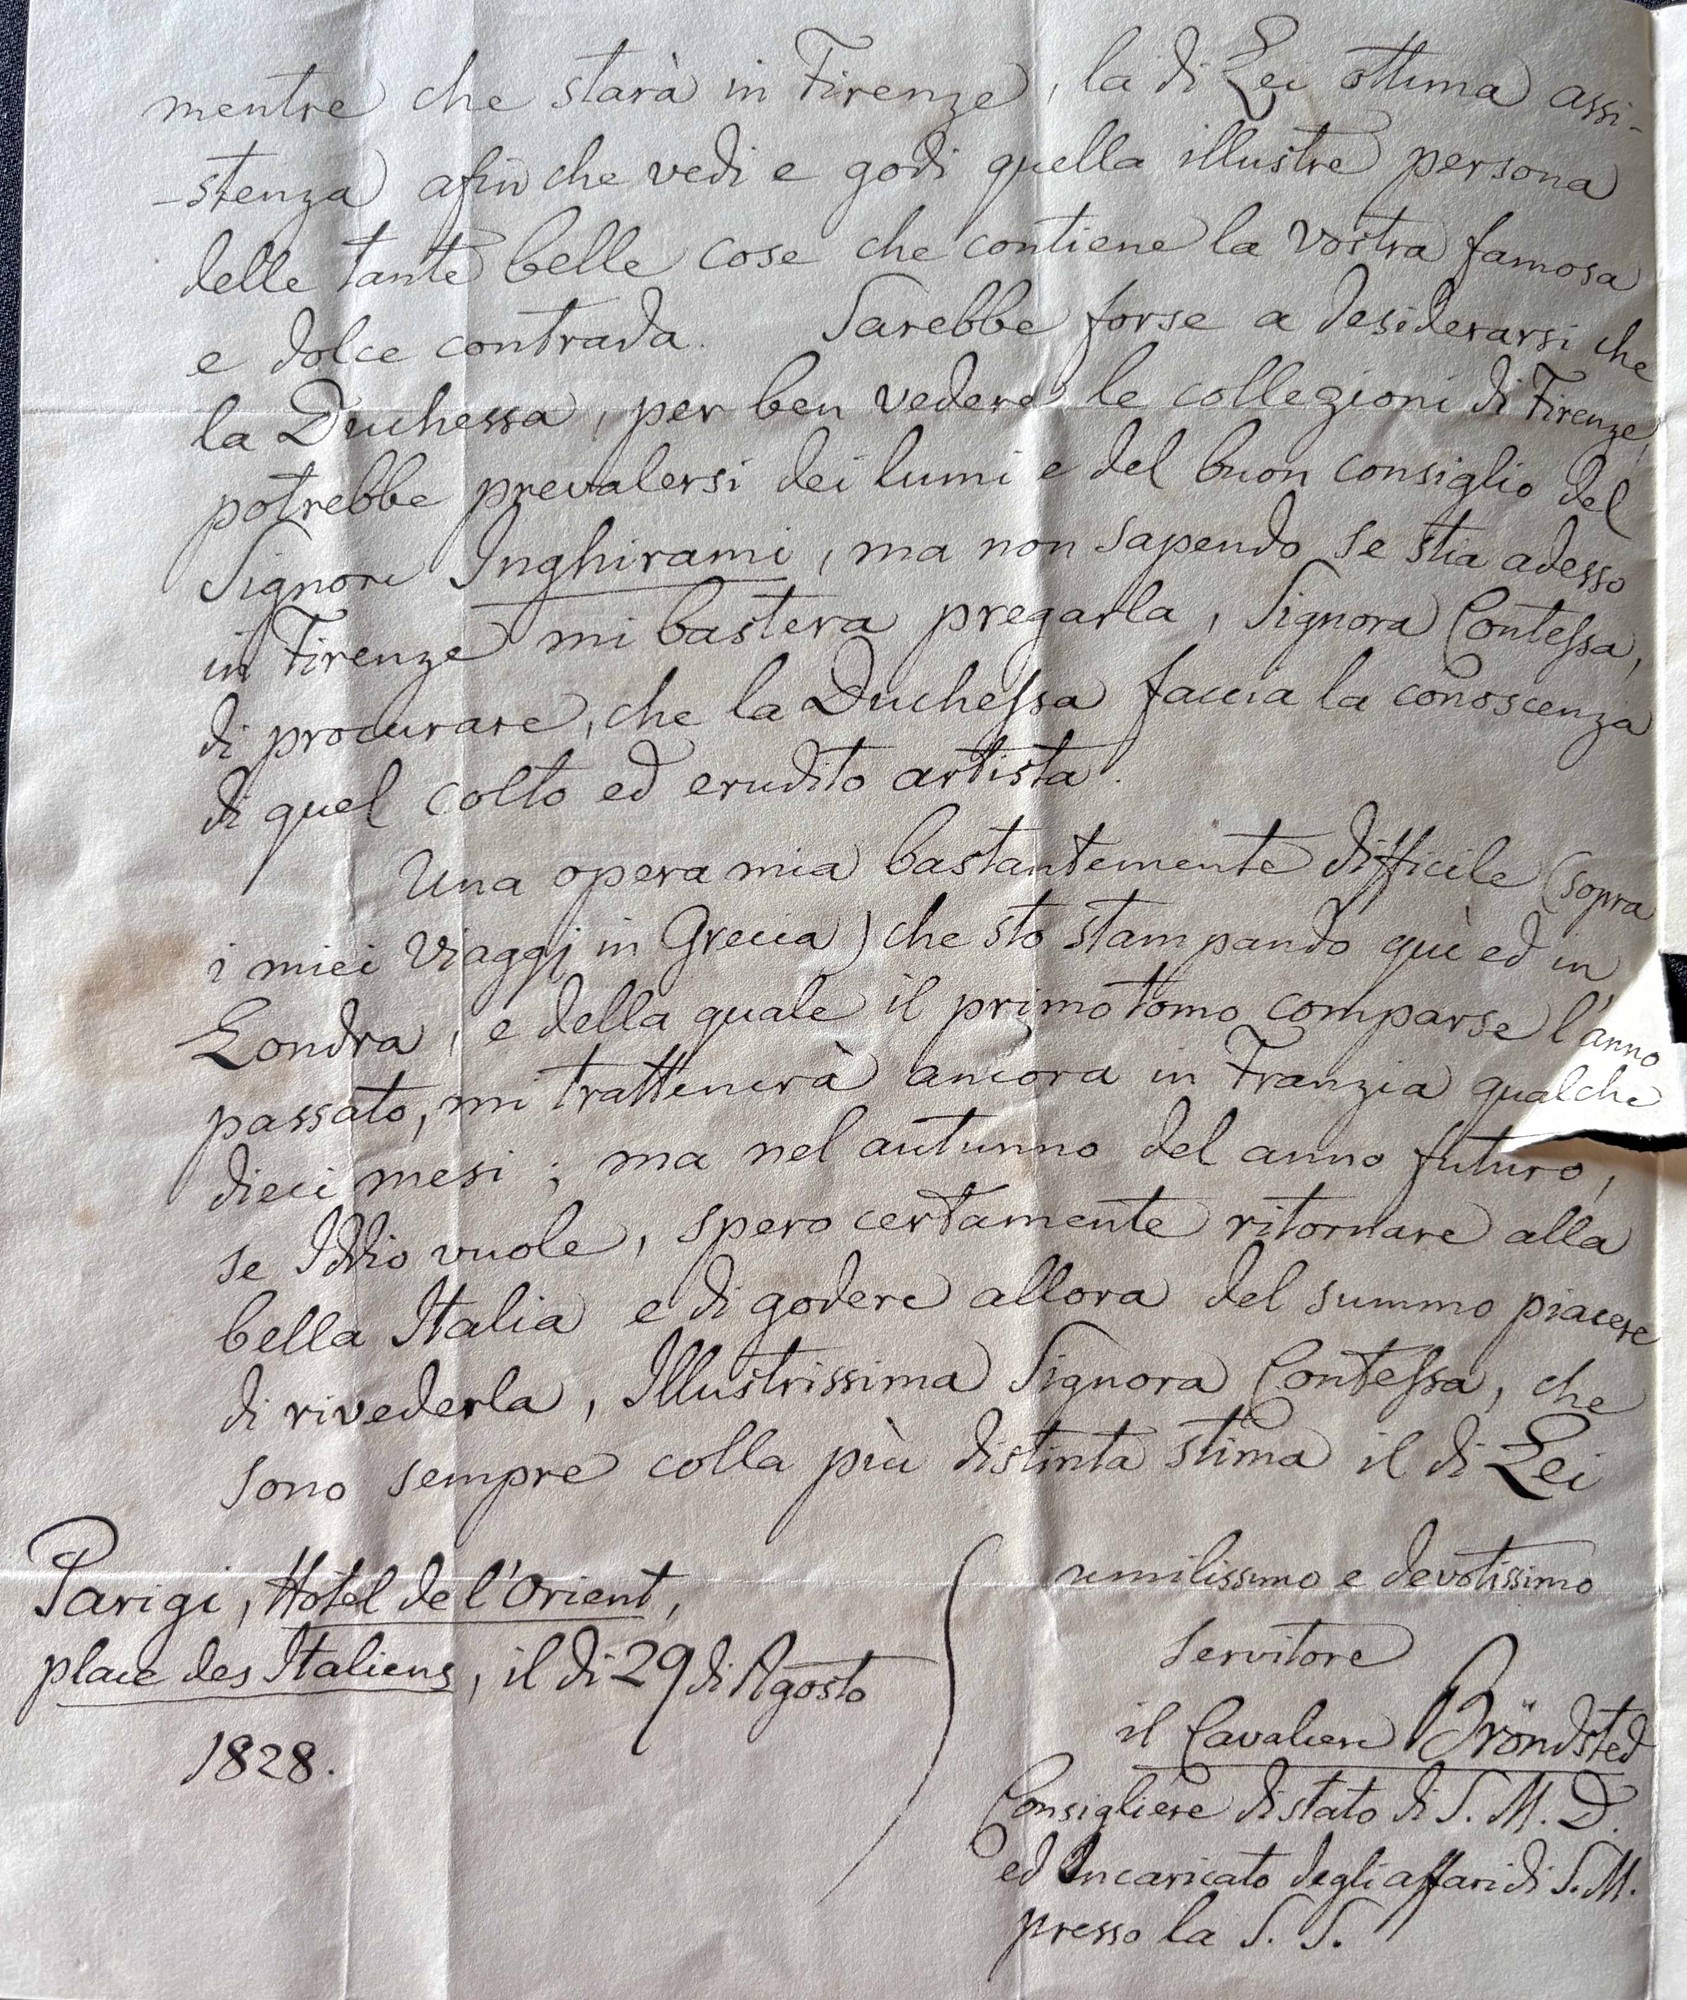 mentre che starà in Firenze, la di Lei ottima assi-
-stenza afin che vedi e godi quella illustre persona
delle tante belle cose che contiene la vostra famosa
e dolce contrada. Sarebbe forse a desiderarsi che
la Duchessa, per ben vedere le collegioni di Firenze,
potrebbe prevalersi dei lumi e del buon consiglio del
Signore Inghirami, ma non sapendo se stia adesso
in Firenze mi bastera pregarla, Signora Contessa,
di procurare, che la Duchessa faccia la conoscenza
di quel colto ed erudito artista.
Una opera mia bastantemente difficile (sopra
i miei viaggj in Grecia) che sto stampando quì ed in
Londra, e della quale il primo tomo comparse l'anno
passato, mi trattenerà ancora in Franzia qualche
dieci mesi; ma nel autunno del anno futuro,
se Iddio vuole, spero certamente ritornare alla
bella Italia e di godere allora del summo piacere
di rivederla, Illustrissima Signora Contessa, che
sono sempre colla più distinta stima il di Lei
umilissimo e devotissimo
servitore
il Cavaliere Bröndsted
Consigliere di stato di S. M. D.
ed Incaricato degli affari di S. M.
presso la S. S.
Parigi, Hôtel de l'Orient,
place des Italiens, il di 29 di Agosto
1828.